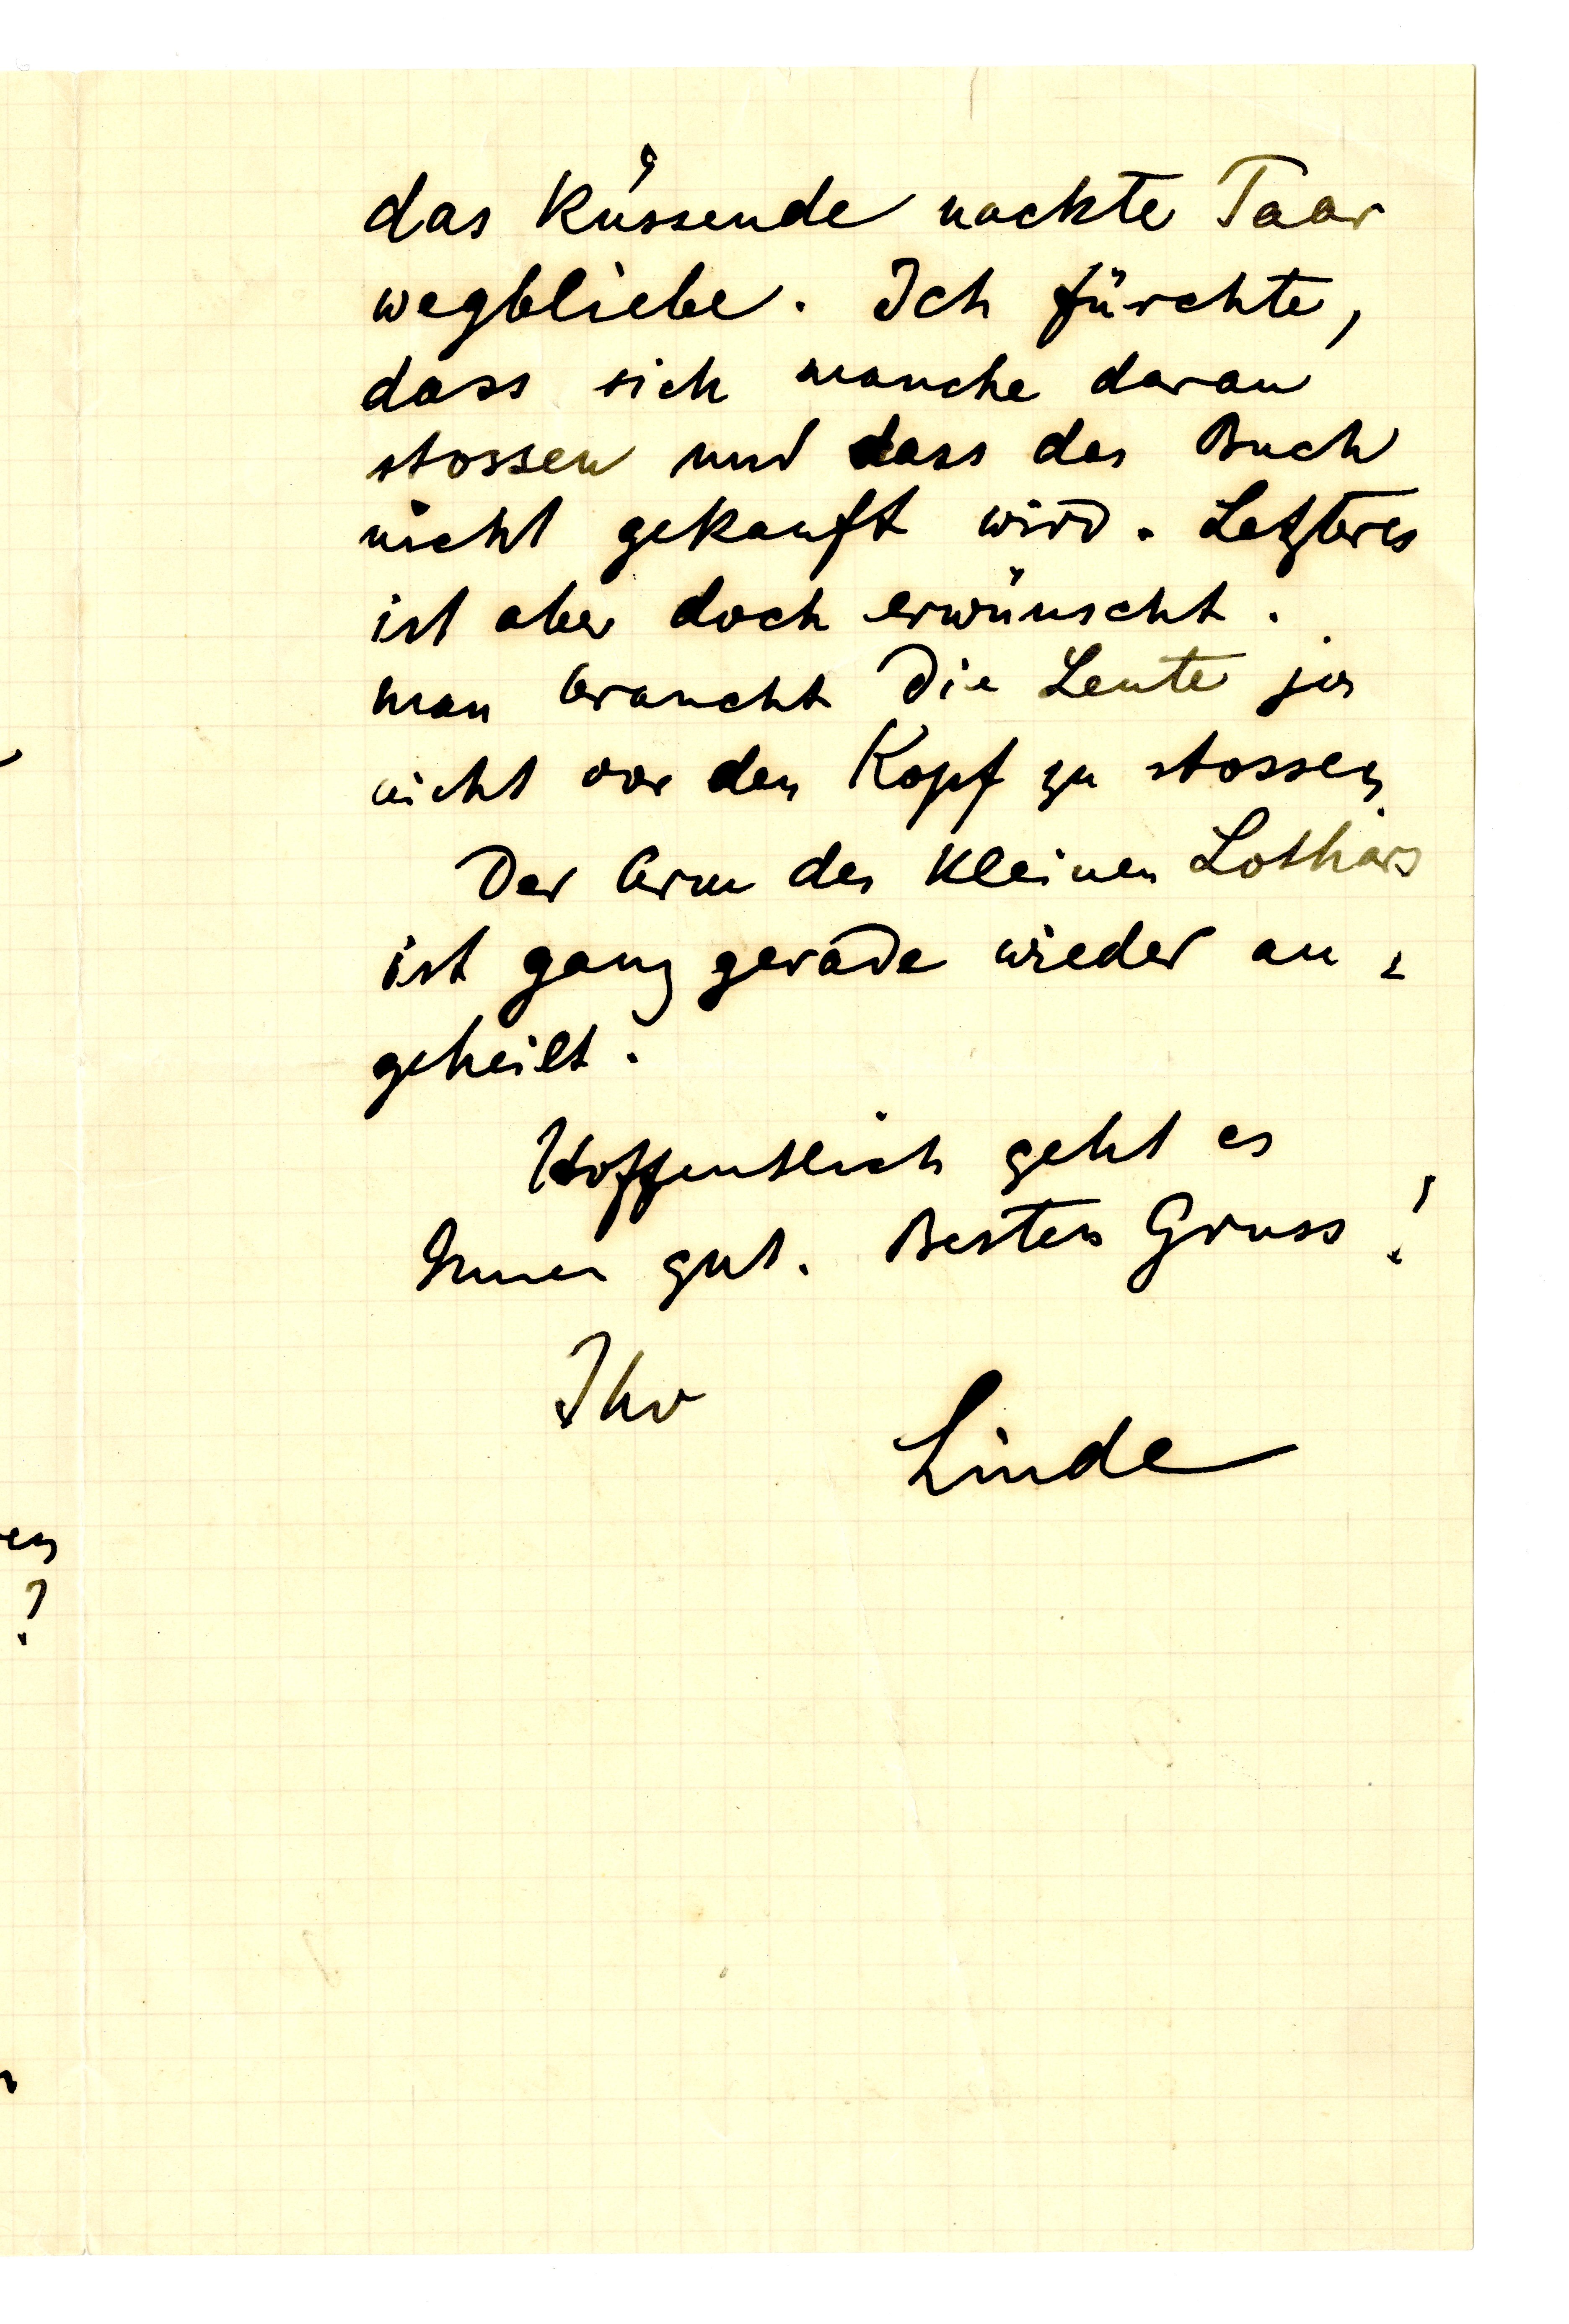 das küssende nackte Paar
wegbliebe. Ich fürchte,
dass sich manche daran
stossen und dass das Buch
nicht gekauft wird. Letzteres
ist aber doch erwünscht.
man braucht die Leute ja
nicht vor den Kopf zu stossen.
Der Arm des kleinen Lothars
ist ganz gerade wieder an-
geheilt.
Hoffentlich geht es
Ihnen gut. Besten Gruss!
Ihr
Linde
en
?